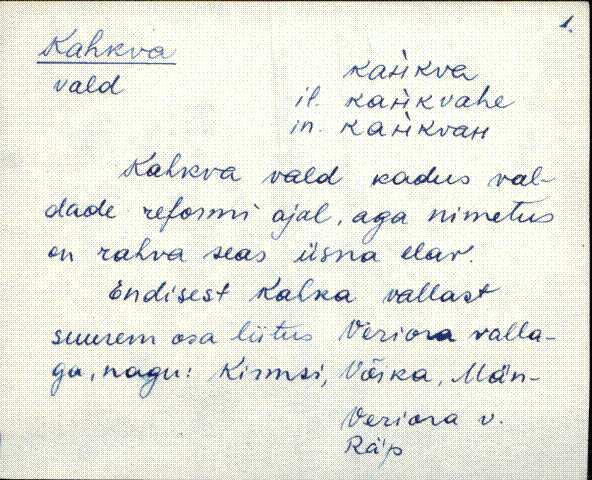 1.
Kahkva
vald
kaʜ̀kva
il. kaʜ̀kvahe
in. kaʜ̀kvaʜ
Kahkva vald kadus val-
dade reformi ajal, aga nimetus
on rahva seas üsna elav.
Endisest Kahka vallast
suurem osa liitus Veriora valla-
ga, nagu: Kirmsi, Võika, Män-
Veriora v.
Räp